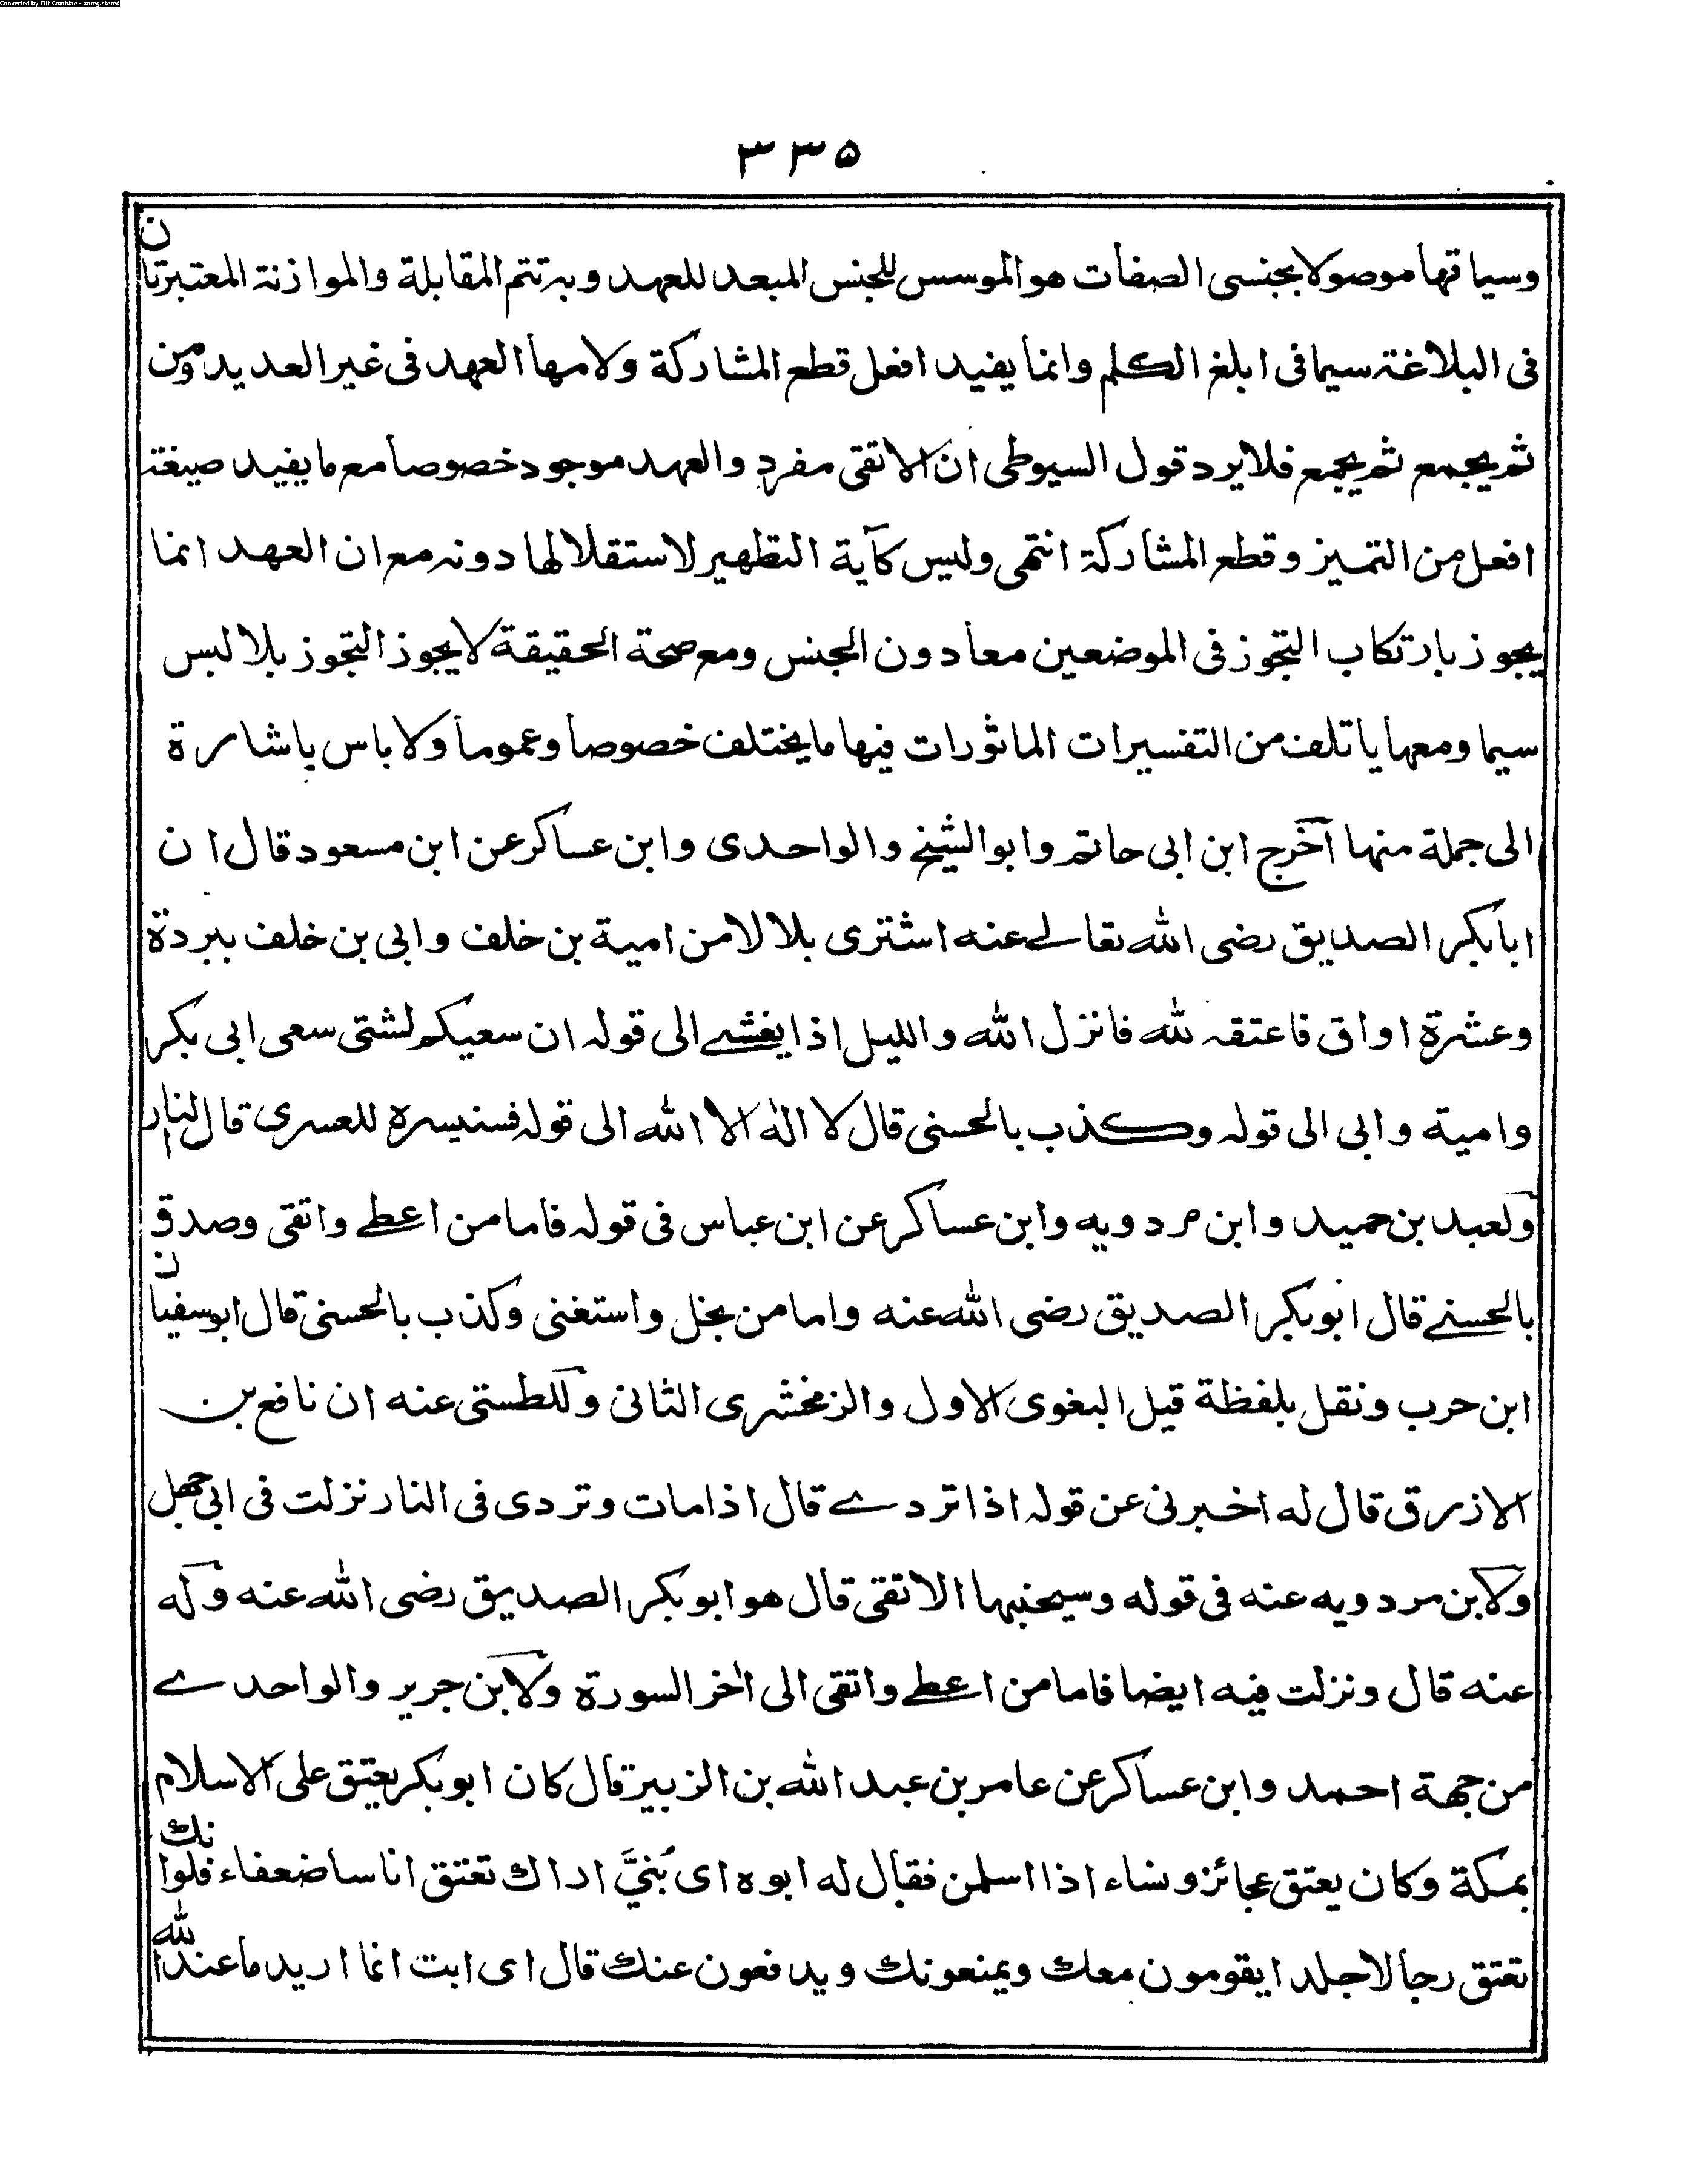 Converted by Tiff Combine - unregistered
٣٣٥
وسياقها موصولا بجنسى الصفات هو الموسس للجنس المبعد للعهد وبه تتم المقابلة والموازنة المعتبرتان
فى البلاغة سيما فى ابلغ الكلم وانما يفيد افعل قطع المشاركة ولامها العهد فى غير العديد ومن
ثم يجمع ثم يجمع فلا يرد قول السيوطى ان الاتقى مفرد والعهد موجود خصوصا مع ما يفيد صيغة
افعل من التميز وقطع المشاركة انتهى وليس كآية التطهير لاستقلالها دونه مع ان العهد انما
يجوز بارتكاب التجوز فى الموضعين معا دون الجنس ومع صحة الحقيقة لا يجوز التجوز بلا لبس
سيما ومعها ياتلف من التفسيرات الماثورات فيها ما يختلف خصوصا وعموما ولا باس باشارة
الى جملة منها آخرج ابن ابى حاتم وابو الشيخ والواحدى وابن عساكر عن ابن مسعود قال ان
ابا بكر الصديق رضى الله تعالے عنه اشترى بلالا من امية بن خلف وابى بن خلف ببردة
وعشرة اواق فاعتقه لله فانزل الله والليل اذا يغشے الى قوله ان سعيكم لشتى سعى ابى بكر
وامية وابى الى قوله وكذب بالحسنى قال لا اله الا الله الى قوله فسنيسره للعسرى قال النار
ولعبد بن حميد وابن مردويه وابن عساكر عن ابن عباس فى قوله فاما من اعطے واتقى وصدق
بالحسنے قال ابو بكر الصديق رضى الله عنه واما من بخل واستغنى وكذب بالحسنى قال ابو سفيان
ابن حرب ونقل بلفظة قيل البغوى الاول والزمخشرى الثانى وللطستى عنه ان نافع بن
الازرق قال له اخبرنى عن قوله اذا تردے قال اذا مات وتردى فى النار نزلت فى ابى جهل
ولابن مردويه عنه فى قوله وسيجنبها الاتقى قال هو ابو بكر الصديق رضى الله عنه وله
عنه قال ونزلت فيه ايضا فاما من اعطے واتقى الى اٰخر السورة ولابن جرير والواحدے
من جهة احمد وابن عساكر عن عامر بن عبد الله بن الزبير قال كان ابو بكر يعتق على الاسلام
بمكة وكان يعتق عجائز ونساء اذا اسلمن فقال له ابوه اى بُنيَّ اراك تعتق اناسا ضعفاء فلو انك
تعتق رجالا جلدا يقومون معك ويمنعونك ويدفعون عنك قال اى ابت انما اريد ما عند الله